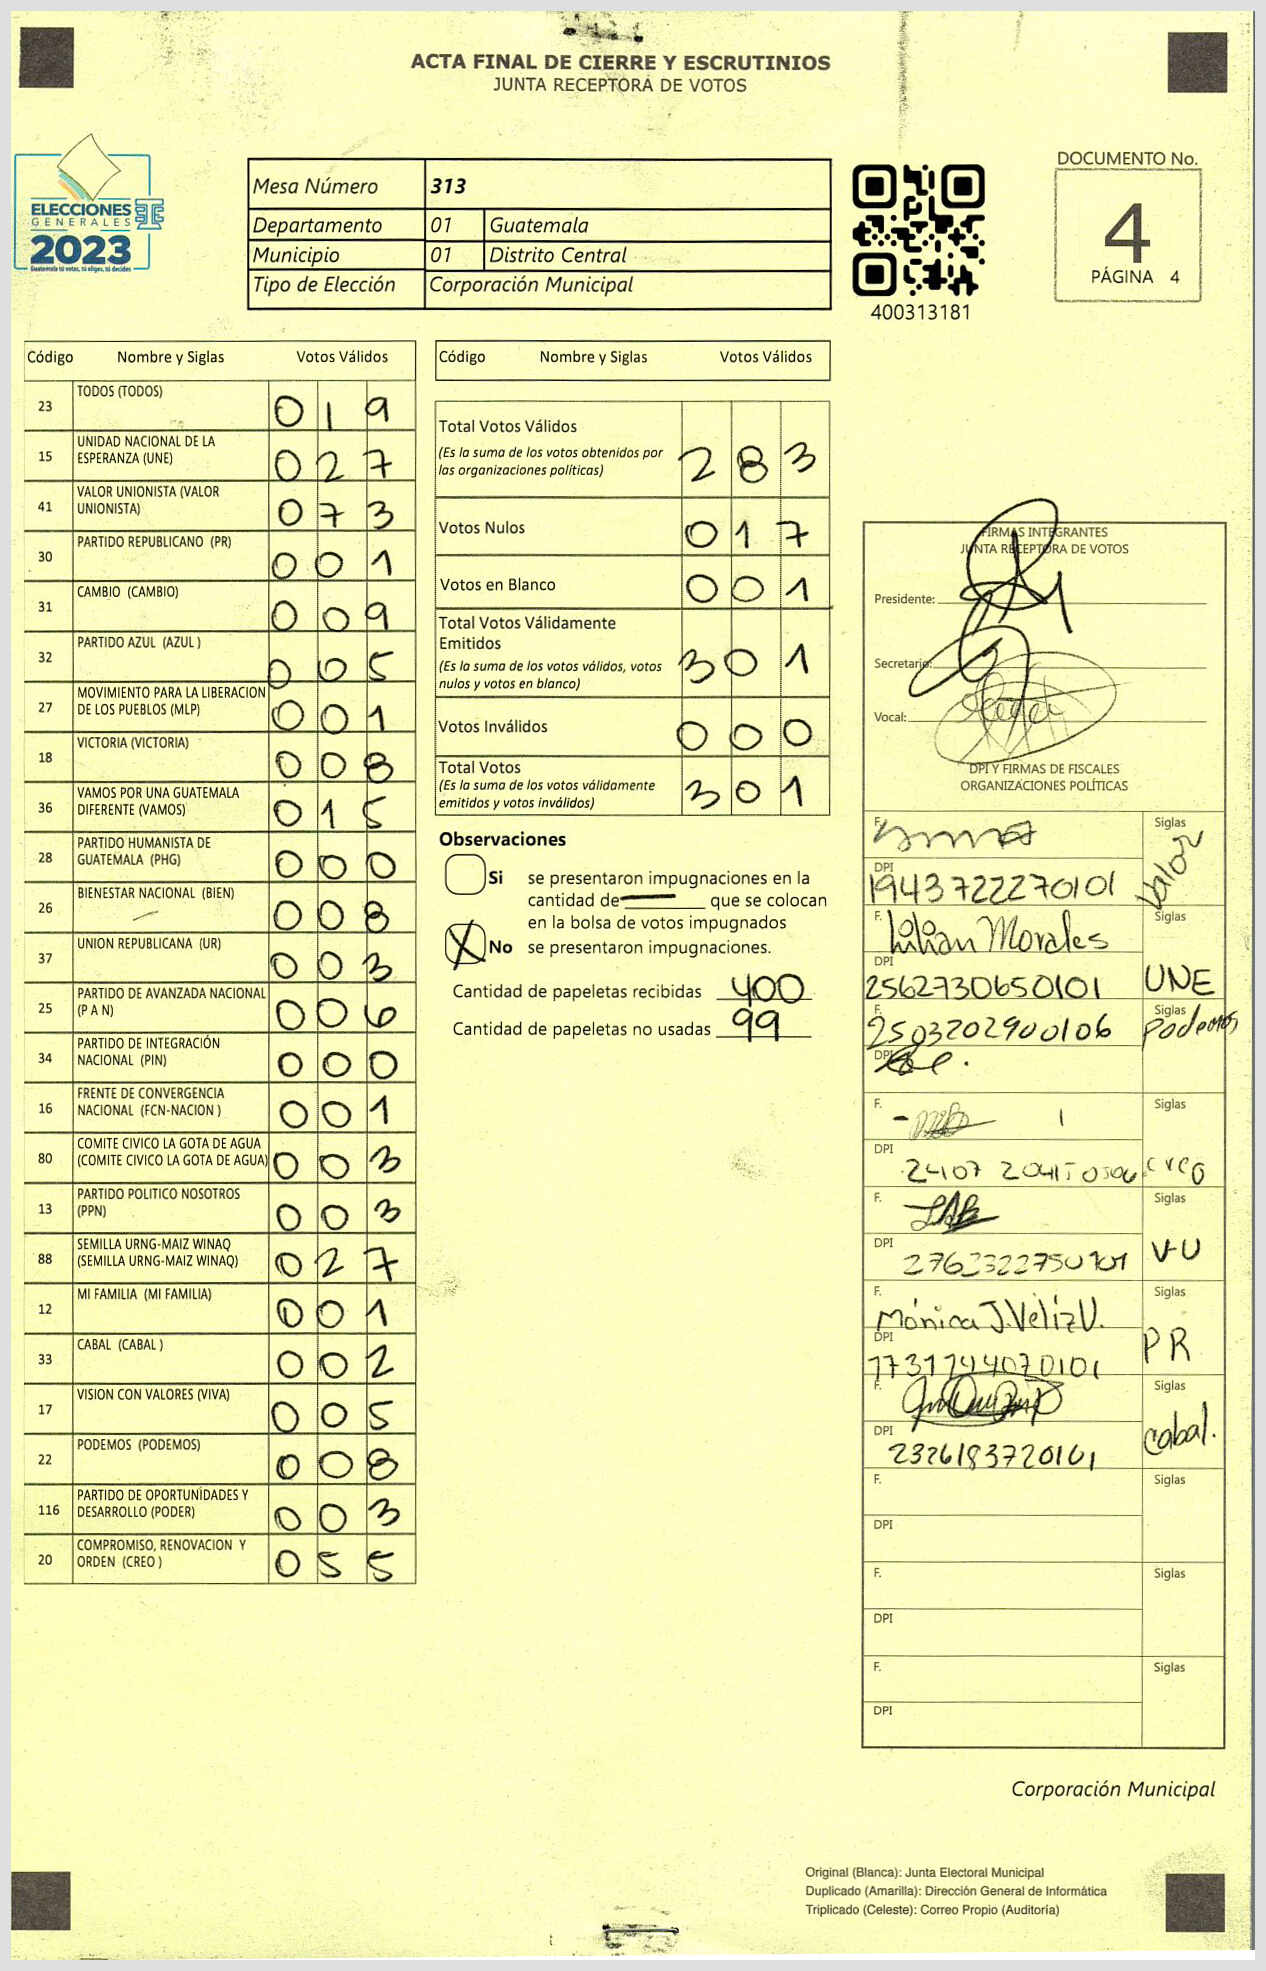 ACTA FINAL DE CIERRE Y ESCRUTINIOS
JUNTA RECEPTORA DE VOTOS
ELECCIONES
GENERALES
2023
Guatemala tú votas, tú eliges, tú decides
Mesa Número 313
Departamento 01 Guatemala
Municipio 01 Distrito Central
Tipo de Elección Corporación Municipal
400313181
DOCUMENTO No.
4
PÁGINA 4
Código Nombre y Siglas Votos Válidos
23 TODOS (TODOS) 0 1 9
15 UNIDAD NACIONAL DE LA
ESPERANZA (UNE) 0 2 7
41 VALOR UNIONISTA (VALOR
UNIONISTA) 0 7 3
30 PARTIDO REPUBLICANO (PR) 0 0 1
31 CAMBIO (CAMBIO) 0 0 9
32 PARTIDO AZUL (AZUL ) 0 0 5
27 MOVIMIENTO PARA LA LIBERACION
DE LOS PUEBLOS (MLP) 0 0 1
18 VICTORIA (VICTORIA) 0 0 8
36 VAMOS POR UNA GUATEMALA
DIFERENTE (VAMOS) 0 1 5
28 PARTIDO HUMANISTA DE
GUATEMALA (PHG) 0 0 0
26 BIENESTAR NACIONAL (BIEN) 0 0 8
37 UNION REPUBLICANA (UR) 0 0 3
25 PARTIDO DE AVANZADA NACIONAL
(P A N) 0 0 6
34 PARTIDO DE INTEGRACIÓN
NACIONAL (PIN) 0 0 0
16 FRENTE DE CONVERGENCIA
NACIONAL (FCN-NACION ) 0 0 1
80 COMITE CIVICO LA GOTA DE AGUA
(COMITE CIVICO LA GOTA DE AGUA) 0 0 3
13 PARTIDO POLITICO NOSOTROS
(PPN) 0 0 3
88 SEMILLA URNG-MAIZ WINAQ
(SEMILLA URNG-MAIZ WINAQ) 0 2 7
12 MI FAMILIA (MI FAMILIA) 0 0 1
33 CABAL (CABAL ) 0 0 2
17 VISION CON VALORES (VIVA) 0 0 5
22 PODEMOS (PODEMOS) 0 0 8
116 PARTIDO DE OPORTUNIDADES Y
DESARROLLO (PODER) 0 0 3
20 COMPROMISO, RENOVACION Y
ORDEN (CREO ) 0 5 5
Código Nombre y Siglas Votos Válidos
Total Votos Válidos
(Es la suma de los votos obtenidos por
las organizaciones políticas) 2 8 3
Votos Nulos 0 1 7
Votos en Blanco 0 0 1
Total Votos Válidamente
Emitidos
(Es la suma de los votos válidos, votos
nulos y votos en blanco) 3 0 1
Votos Inválidos 0 0 0
Total Votos
(Es la suma de los votos válidamente
emitidos y votos inválidos) 3 0 1
Observaciones
Si se presentaron impugnaciones en la
cantidad de que se colocan
en la bolsa de votos impugnados
X No se presentaron impugnaciones.
Cantidad de papeletas recibidas 400
Cantidad de papeletas no usadas 99
FIRMAS INTEGRANTES
JUNTA RECEPTORA DE VOTOS
Presidente:
Secretario:
Vocal:
DPI Y FIRMAS DE FISCALES
ORGANIZACIONES POLÍTICAS
F. Siglas
DPI 1943722270101 Valor
F. Morales Siglas
DPI 2562730650101 UNE
F. 2503202900106 Siglas Podemos
DPI
F. Siglas
DPI creo
F. Siglas
DPI V-U
F. Mónica J. Véliz V. Siglas
DPI PR
F. Siglas
DPI Cabal.
F. Siglas
DPI
F. Siglas
DPI
F. Siglas
DPI
Corporación Municipal
Original (Blanca): Junta Electoral Municipal
Duplicado (Amarilla): Dirección General de Informática
Triplicado (Celeste): Correo Propio (Auditoría)